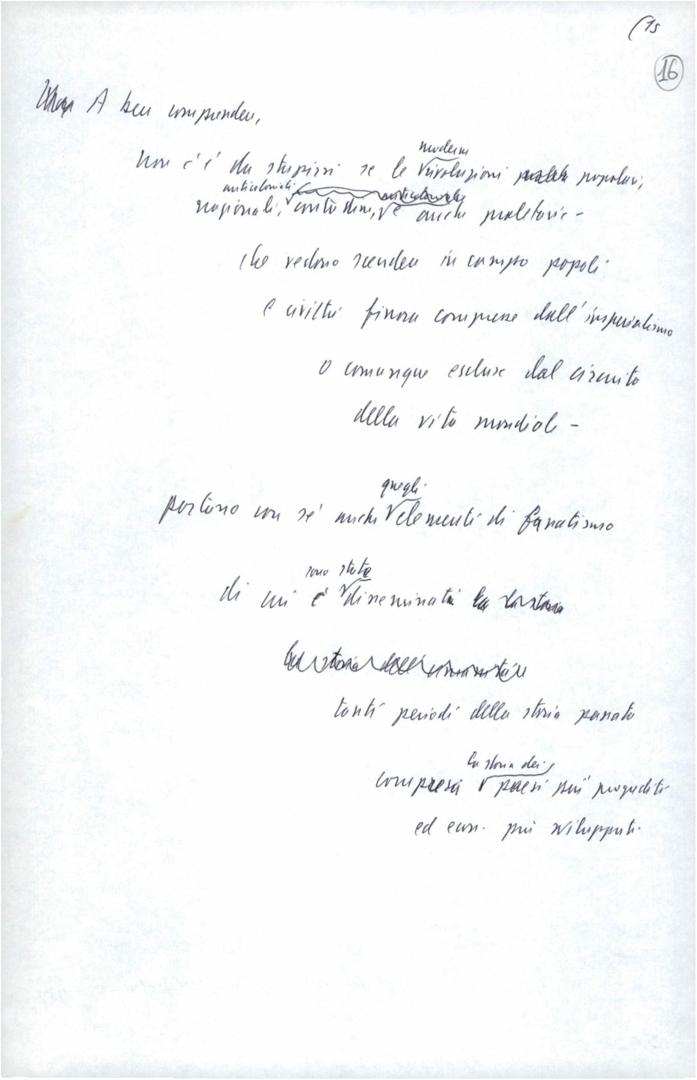 (15
16
A ben comprendere,
moderne
non c'è da stupirsi se le rivoluzioni popolari,
anticoloniali
nazionali, contadine, e anche proletarie -
che vedono scendere in campo popoli
e civiltà finora compresse dall'imperialismo
o comunque escluse dal circuito
della vita mondiale -
quegli
portano con sé anche elementi di fanatismo
sono state
di cui è disseminata
la storia dell'umanità
tanti periodi della storia passata
la storia dei
compresa paesi più progrediti
ed econ. più sviluppati.